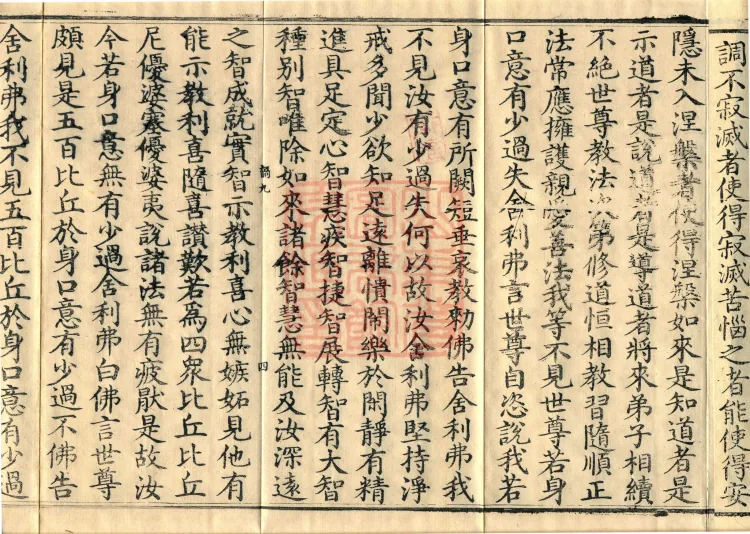 調不寂滅者使得寂滅苦惱之者能使得安
隱未入涅槃者使得涅槃如來是知道者是
示道者是說道者是導道者將來弟子相續
不絕世尊教法次第修道恒相教習隨順正
法常應擁護親愛善法我等不見世尊若身
口意有少過失舍利弗言世尊自恣說我若
身口意有所闕短垂哀教勑佛告舍利弗我
不見汝有少過失何以故汝舍利弗堅持淨
戒多聞少欲知足遠離憒閙樂於閑靜有精
進具足定心智慧疾智捷智展轉智有大智
種別智唯除如來諸餘智慧無能及汝深遠
調九
四
之智成就實智示教利喜心無嫉妬見他有
能示教利喜隨喜讚歎若為四衆比丘比丘
尼優婆塞優婆夷說諸法無有疲猒是故汝
今若身口意無有少過舍利弗白佛言世尊
頗見是五百比丘於身口意有少過不佛告
舍利弗我不見五百比丘於身口意有少過